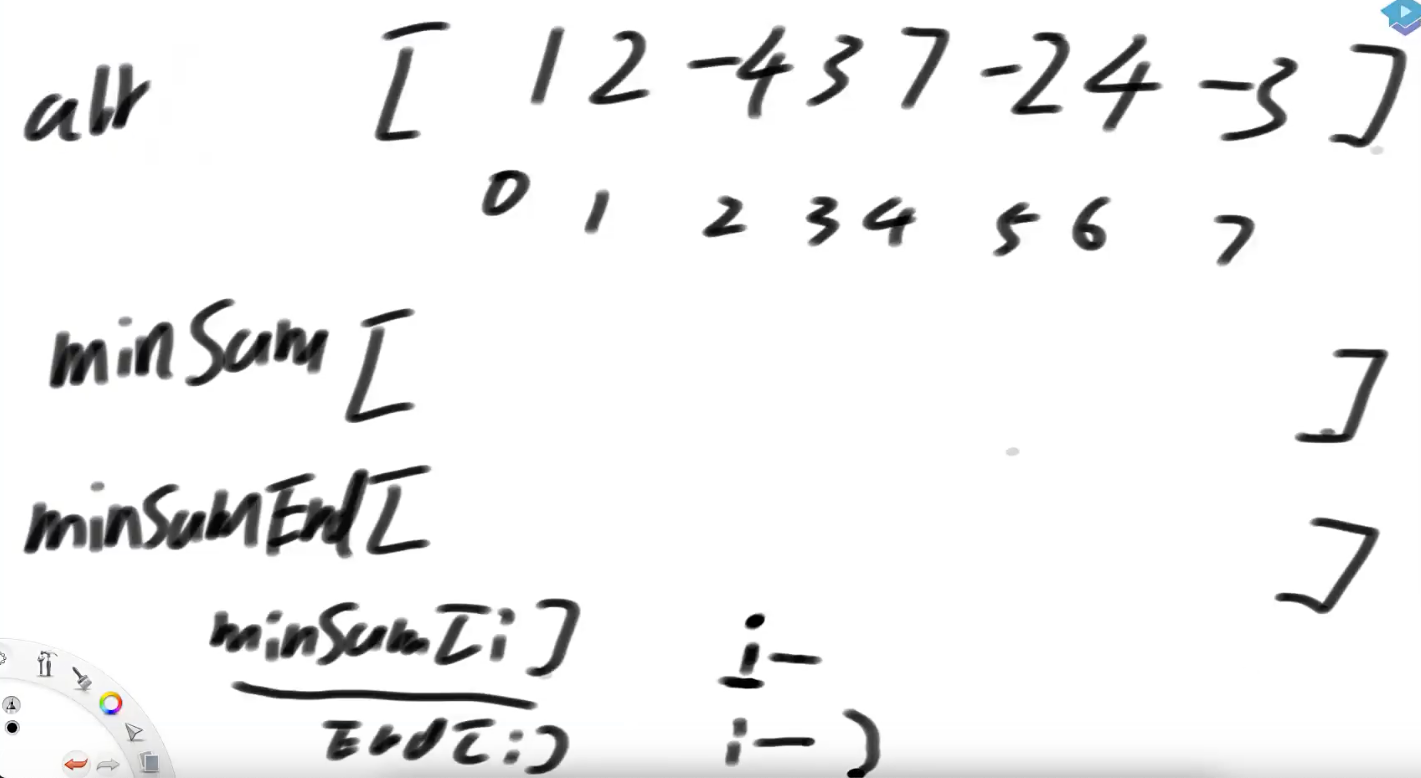 arr [ 1 2 -4 3 7 -2 4 -3 ]
0 1 2 3 4 5 6 7
minSum [ ]
minSumEnd [ ]
minSum[i] i-
End[i] i-)